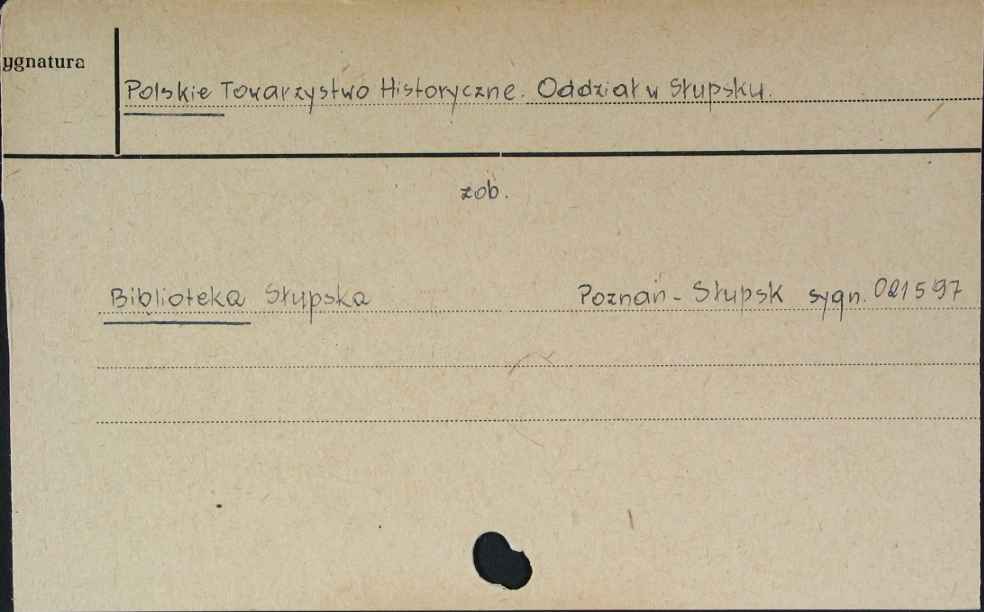 ygnatura
Polskie Towarzystwo Historyczne. Oddział w Słupsku.
zob.
Biblioteka Słupska Poznań - Słupsk sygn. 021597